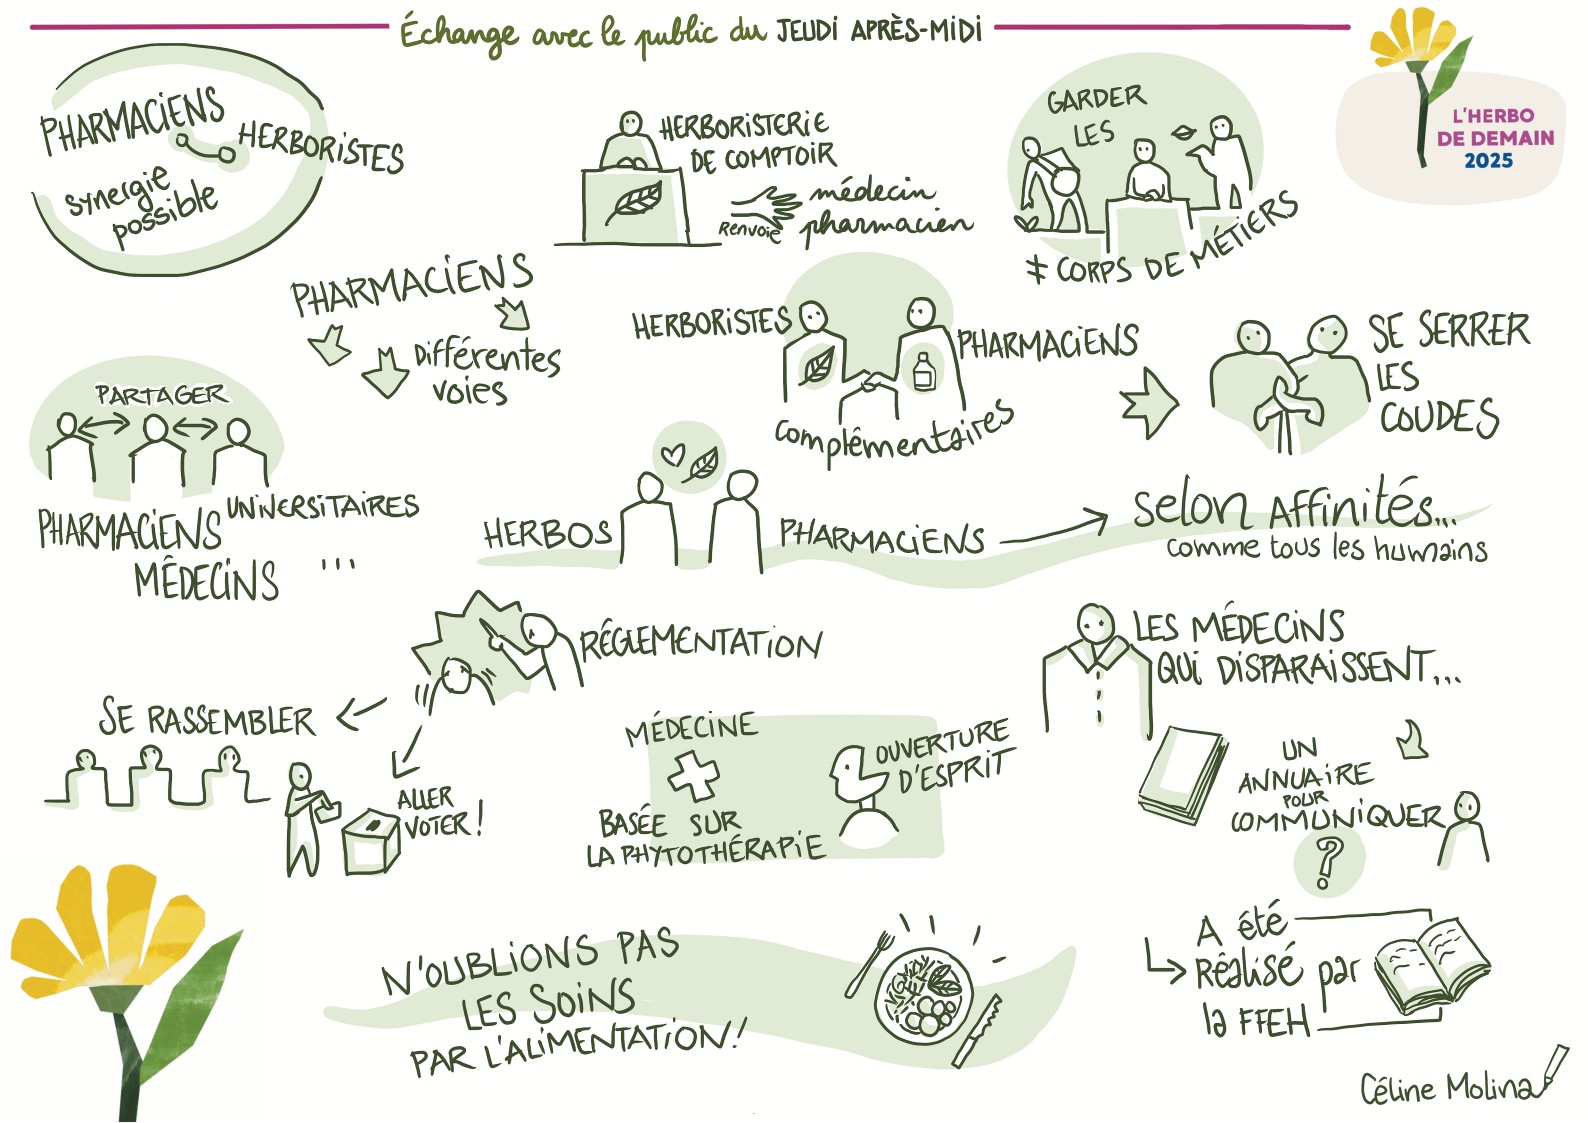 Échange avec le public du JEUDI APRÈS-MIDI
L'HERBO
DE DEMAIN
2025
PHARMACIENS
HERBORISTES
synergie
possible
HERBORISTERIE
DE COMPTOIR
Renvoie
médecin
pharmacien
GARDER
LES
≠ CORPS DE MÉTIERS
PHARMACIENS
Différentes
voies
HERBORISTES
PHARMACIENS
complémentaires
SE SERRER
LES
COUDES
PARTAGER
PHARMACIENS
UNIVERSITAIRES
MÉDECINS
...
HERBOS
PHARMACIENS
selon Affinités...
comme tous les humains
RÉGLEMENTATION
SE RASSEMBLER
ALLER
VOTER !
MÉDECINE
BASÉE SUR
LA PHYTOTHÉRAPIE
OUVERTURE
D'ESPRIT
LES MÉDECINS
QUI DISPARAISSENT...
UN
ANNUAIRE
POUR
COMMUNIQUER
?
A été
Réalisé par
la FFEH
N'OUBLIONS PAS
LES SOINS
PAR L'ALIMENTATION !
Céline Molina